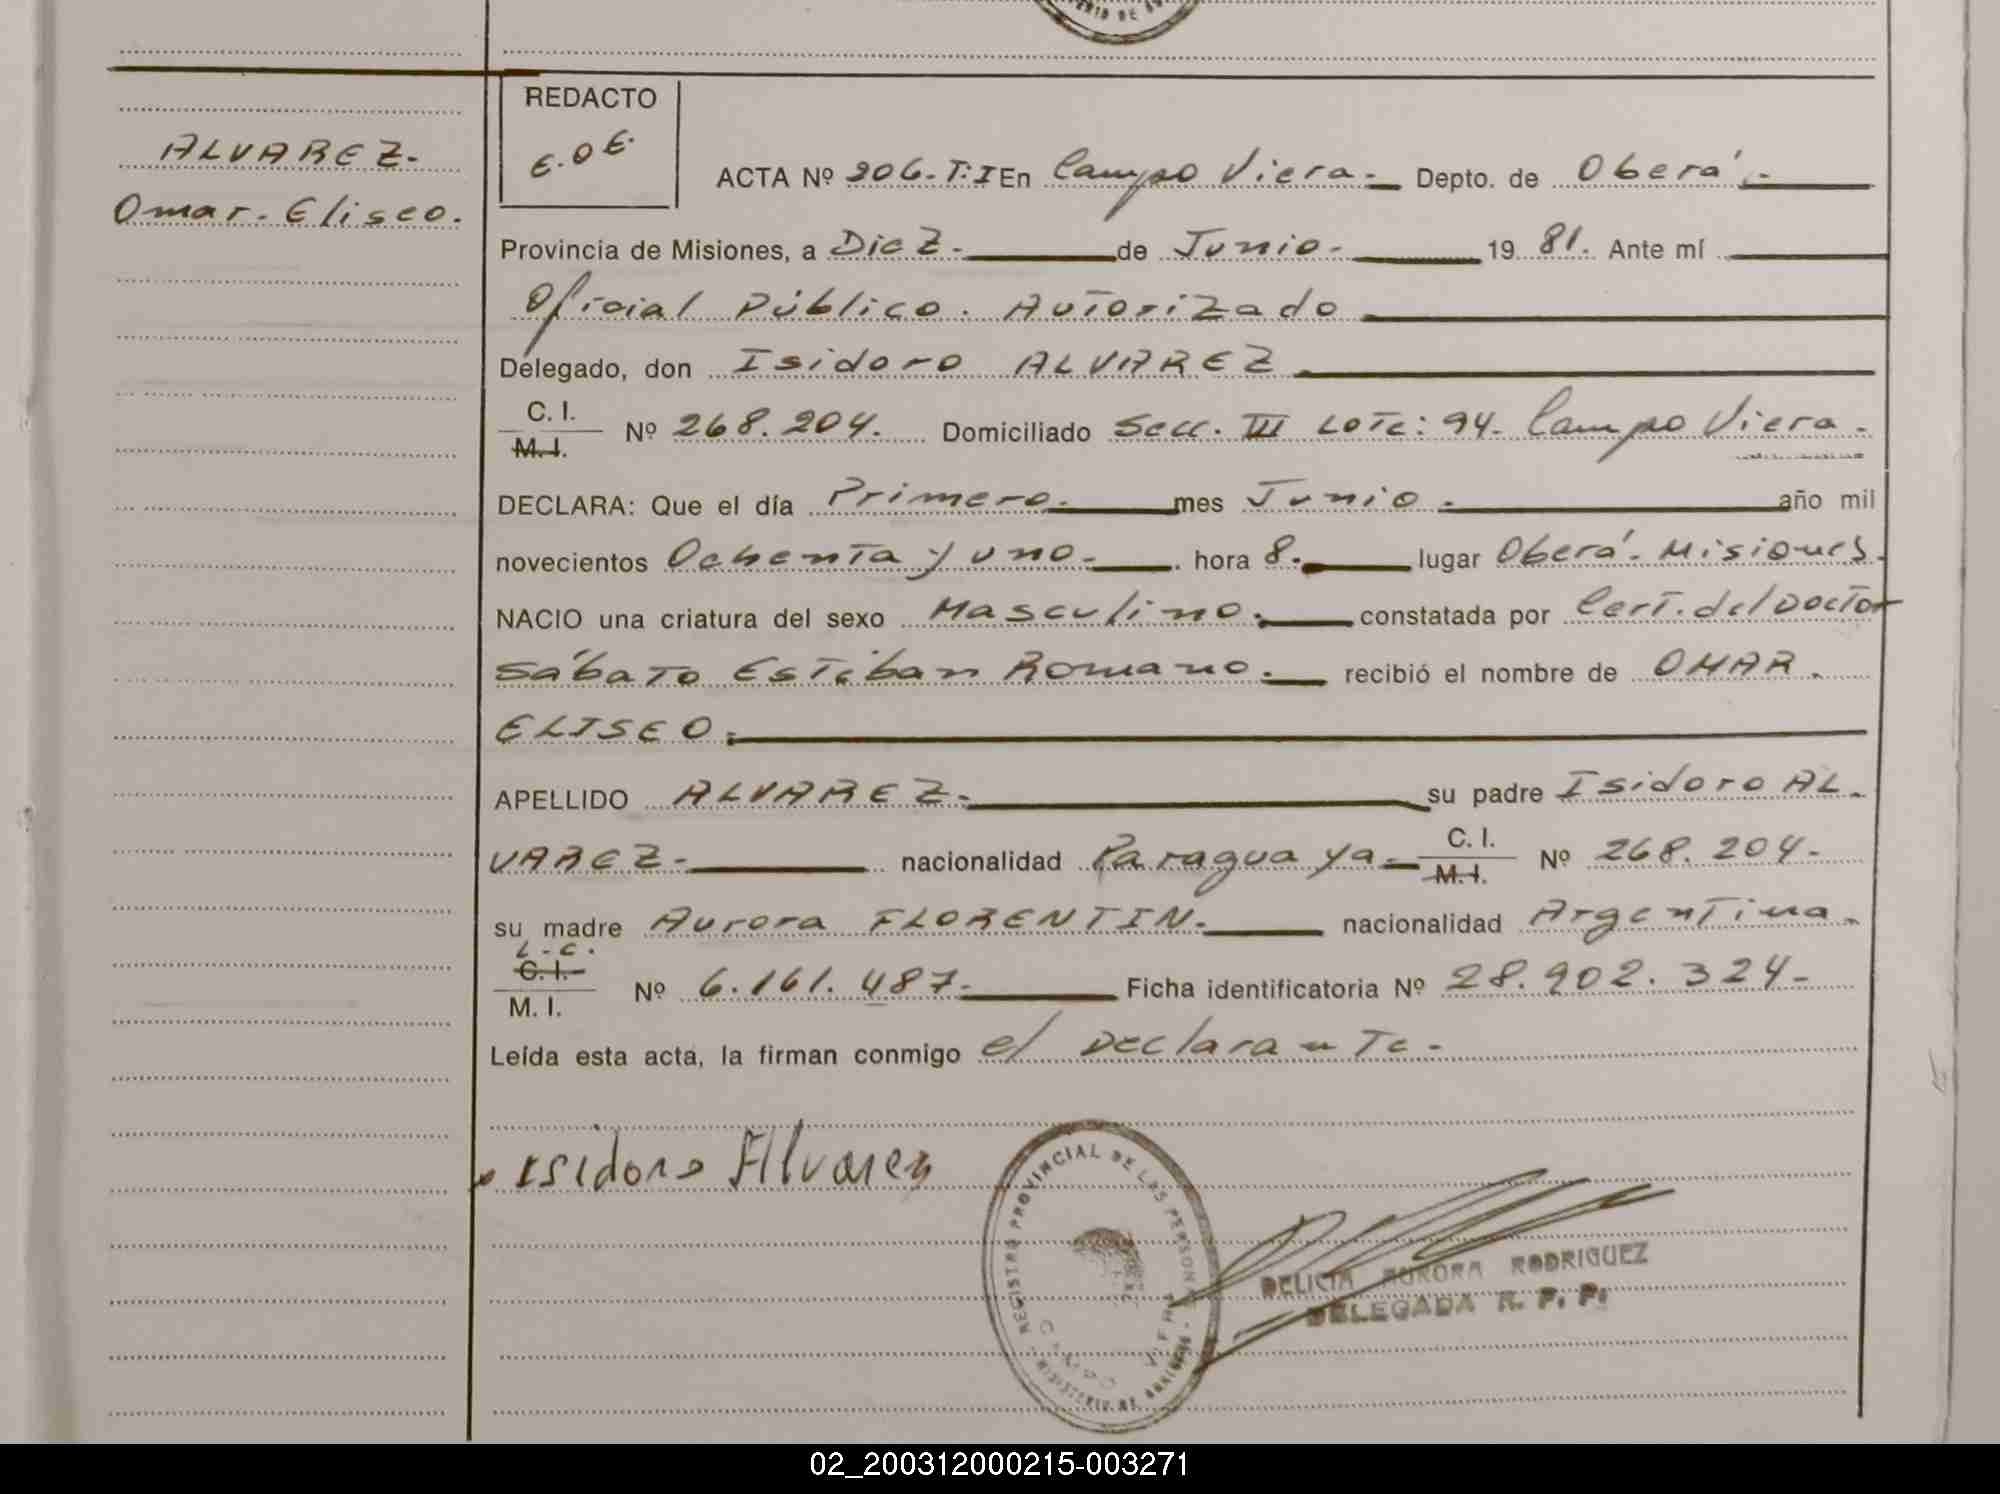 REDACTO
E.O.E.
ALVAREZ.
Omar. Eliseo.
ACTA Nº 206. T: I En Campo Viera. Depto. de Oberá.
Provincia de Misiones, a Diez. de Junio. 19 81. Ante mí
Oficial Público. Autorizado
Delegado, don Isidoro ALVAREZ
C. I.
M. I. Nº 268.204. Domiciliado Secc. III Lote: 94. Campo Viera.
DECLARA: Que el día Primero. mes Junio. año mil
novecientos Ochenta y uno. hora 8. lugar Oberá. Misiones.
NACIO una criatura del sexo Masculino. constatada por Cert. del Doctor
Sábato Esteban Romano. recibió el nombre de OMAR.
ELISEO.
APELLIDO ALVAREZ. su padre Isidoro AL.
VAREZ. nacionalidad Paraguaya C. I.
M. I. Nº 268.204.
su madre Aurora FLORENTIN. nacionalidad Argentina.
L.C.
C. I.
M. I. Nº 6.161.487. Ficha identificatoria Nº 28.902.324.
Leída esta acta, la firman conmigo el Declarante.
Isidoro Alvarez
REGISTRO PROVINCIAL DE LAS PERSONAS
CAMPO VIERA
DELICIA AURORA RODRIGUEZ
DELEGADA R. P. P.
02_200312000215-003271